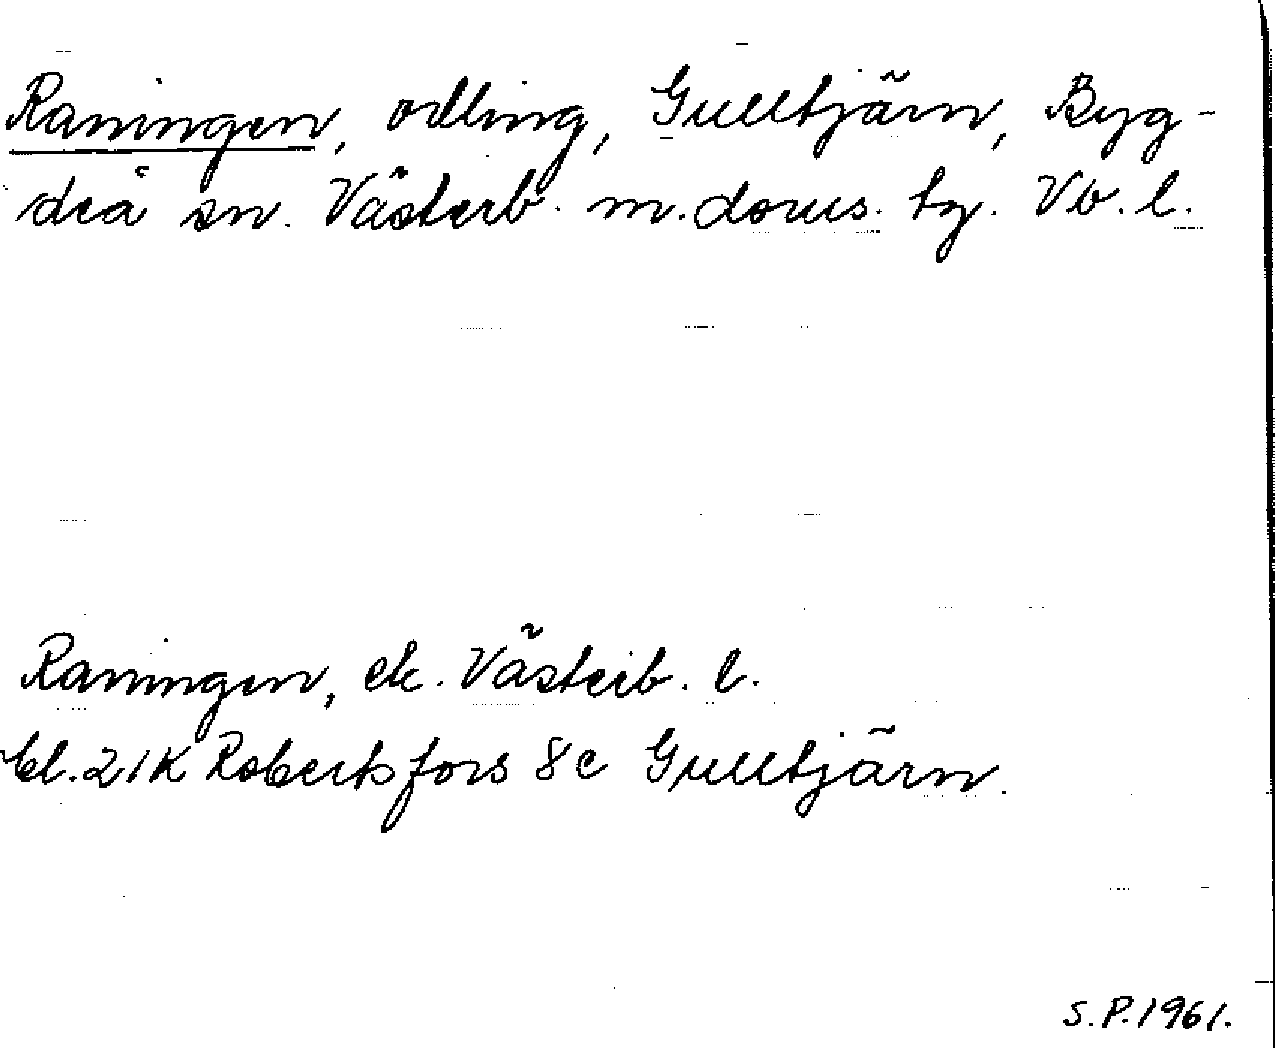 Raningen, odling, Gulltjärn, Byg-
deå sn. Västerb. m. doms. tg. Vb. l.
Raningen, ek. Västerb. l.
bl. 21K Robertsfors 8c Gulltjärn.
S.P. 1961.